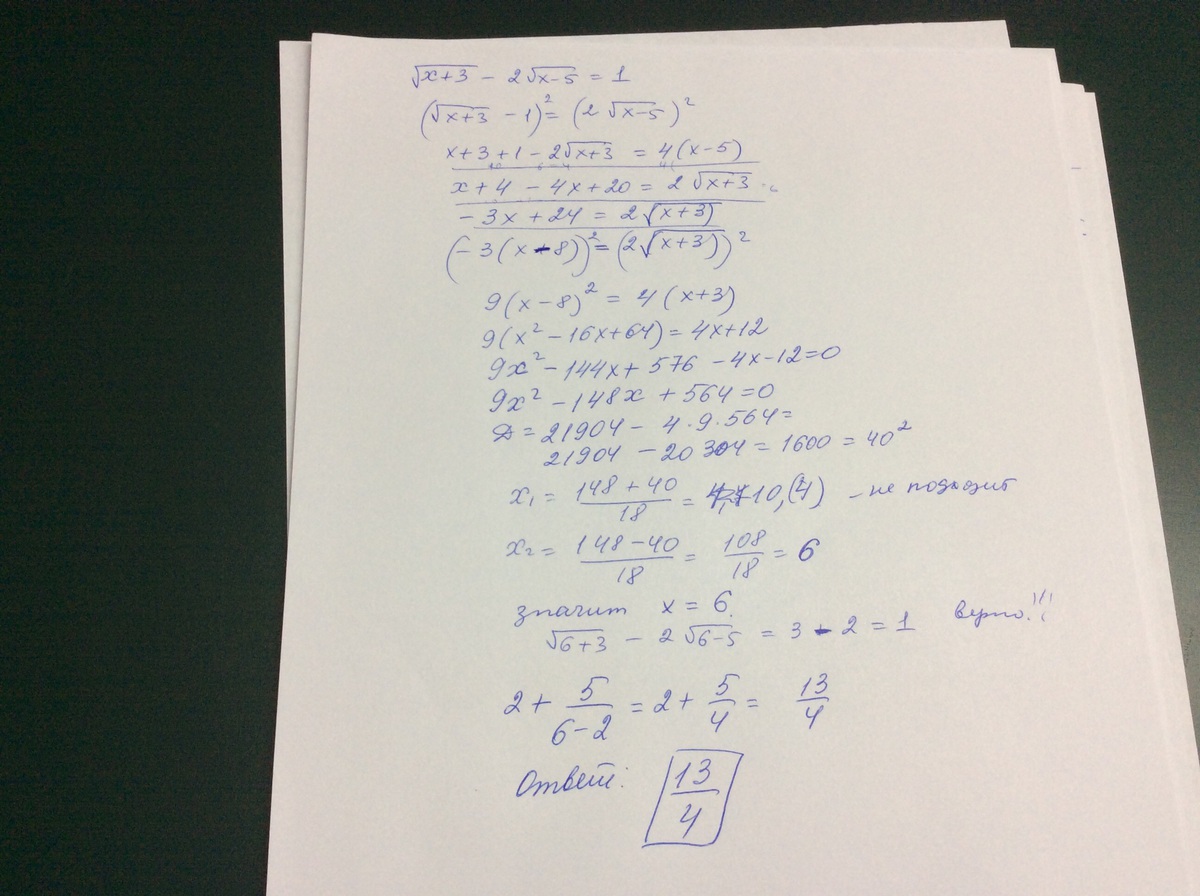 √(x+3) − 2√(x−5) = 1
(√(x+3) − 1)² = (2√(x−5))²
x+3+1 − 2√(x+3) = 4(x−5)
x+4 − 4x+20 = 2√(x+3)
−3x+24 = 2√(x+3)
(−3(x−8))² = (2√(x+3))²
9(x−8)² = 4(x+3)
9(x² −16x+64) = 4x+12
9x² −144x+ 576 −4x−12=0
9x² −148x +564=0
D = 21904 − 4·9·564=
21904 −20304 = 1600 = 40²
x₁ = (148+40)/18 = 10,(4) – не подходит
x₂ = (148−40)/18 = 108/18 = 6
значит x = 6.
√(6+3) − 2√(6−5) = 3 − 2 = 1 верно!!!
2+ 5/(6−2) = 2+ 5/4 = 13/4
Ответ: 13/4